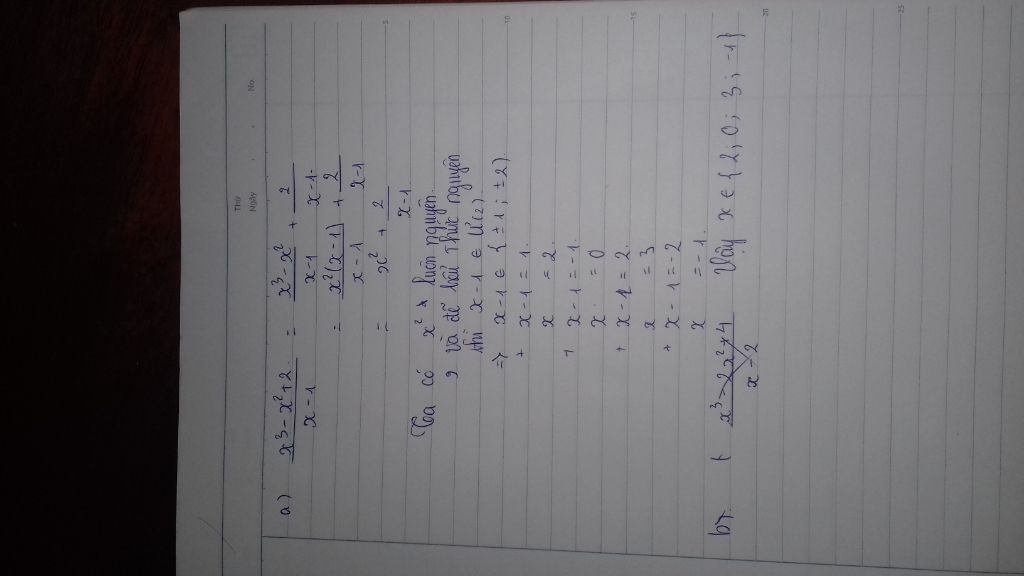 Thứ
Ngày
No.
a) x³ - x² + 2 / x - 1 = x³ - x² / x - 1 + 2 / x - 1
= x²(x - 1) / x - 1 + 2 / x - 1
= x² + 2 / x - 1
Ta có x² luôn nguyên
và để biểu thức nguyên
thì x - 1 ∈ Ư(2)
=> x - 1 ∈ { ±1 ; ±2 )
+ x - 1 = 1
x = 2
+ x - 1 = -1
x = 0
+ x - 1 = 2
x = 3
+ x - 1 = -2
x = -1
Vậy x ∈ { 2 ; 0 ; 3 ; -1 }
b) x³ - 2x² + 4 / x - 2
5
10
15
20
25